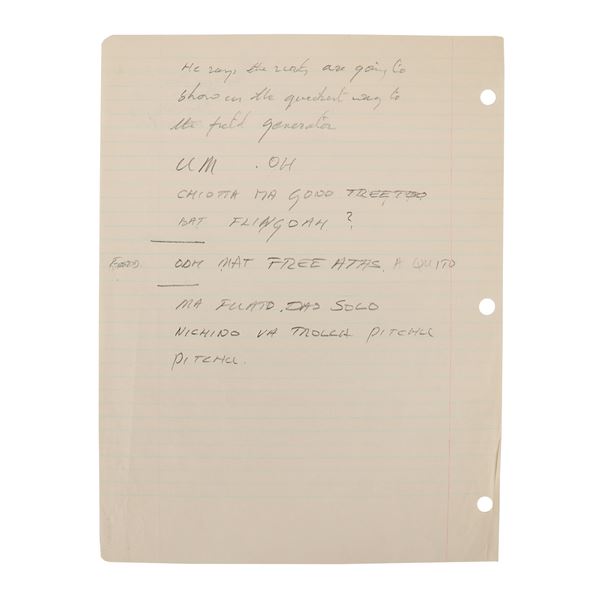 He says the scouts are going to
show us the quickest way to
the field generator
UM . OH
CHIOTTA MA GOOD TREETOO
BAT FLINGOAH ?
ODH MAT FREE ATAS, A QUITO
MA FULATO. DAD SOLO
NICHINO VA TROLLCK PITCHU
PITCHU.